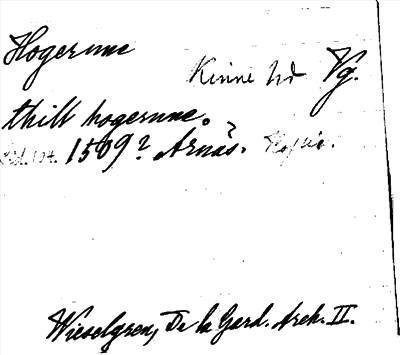 Hogerune Kinne hd Vg.
thill hogerune.
Sid. 104. 1509? Årnäs. Kopia.
Wieselgren, De la Gard. Arch. II.